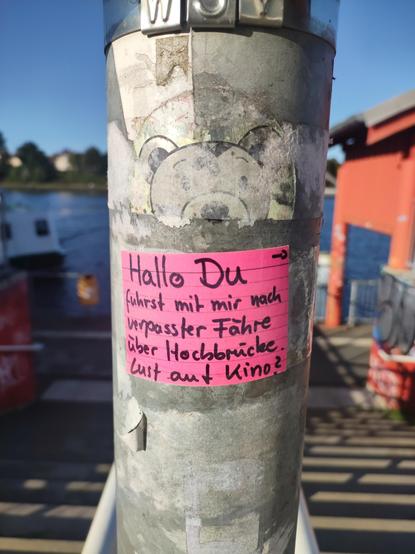 WSV
Hallo Du
fuhrst mit mir nach
verpasster Fähre
über Hochbrücke.
Lust auf Kino?